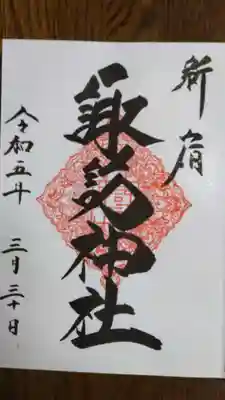 新宿
諏訪神社
令和五年
三月三十日